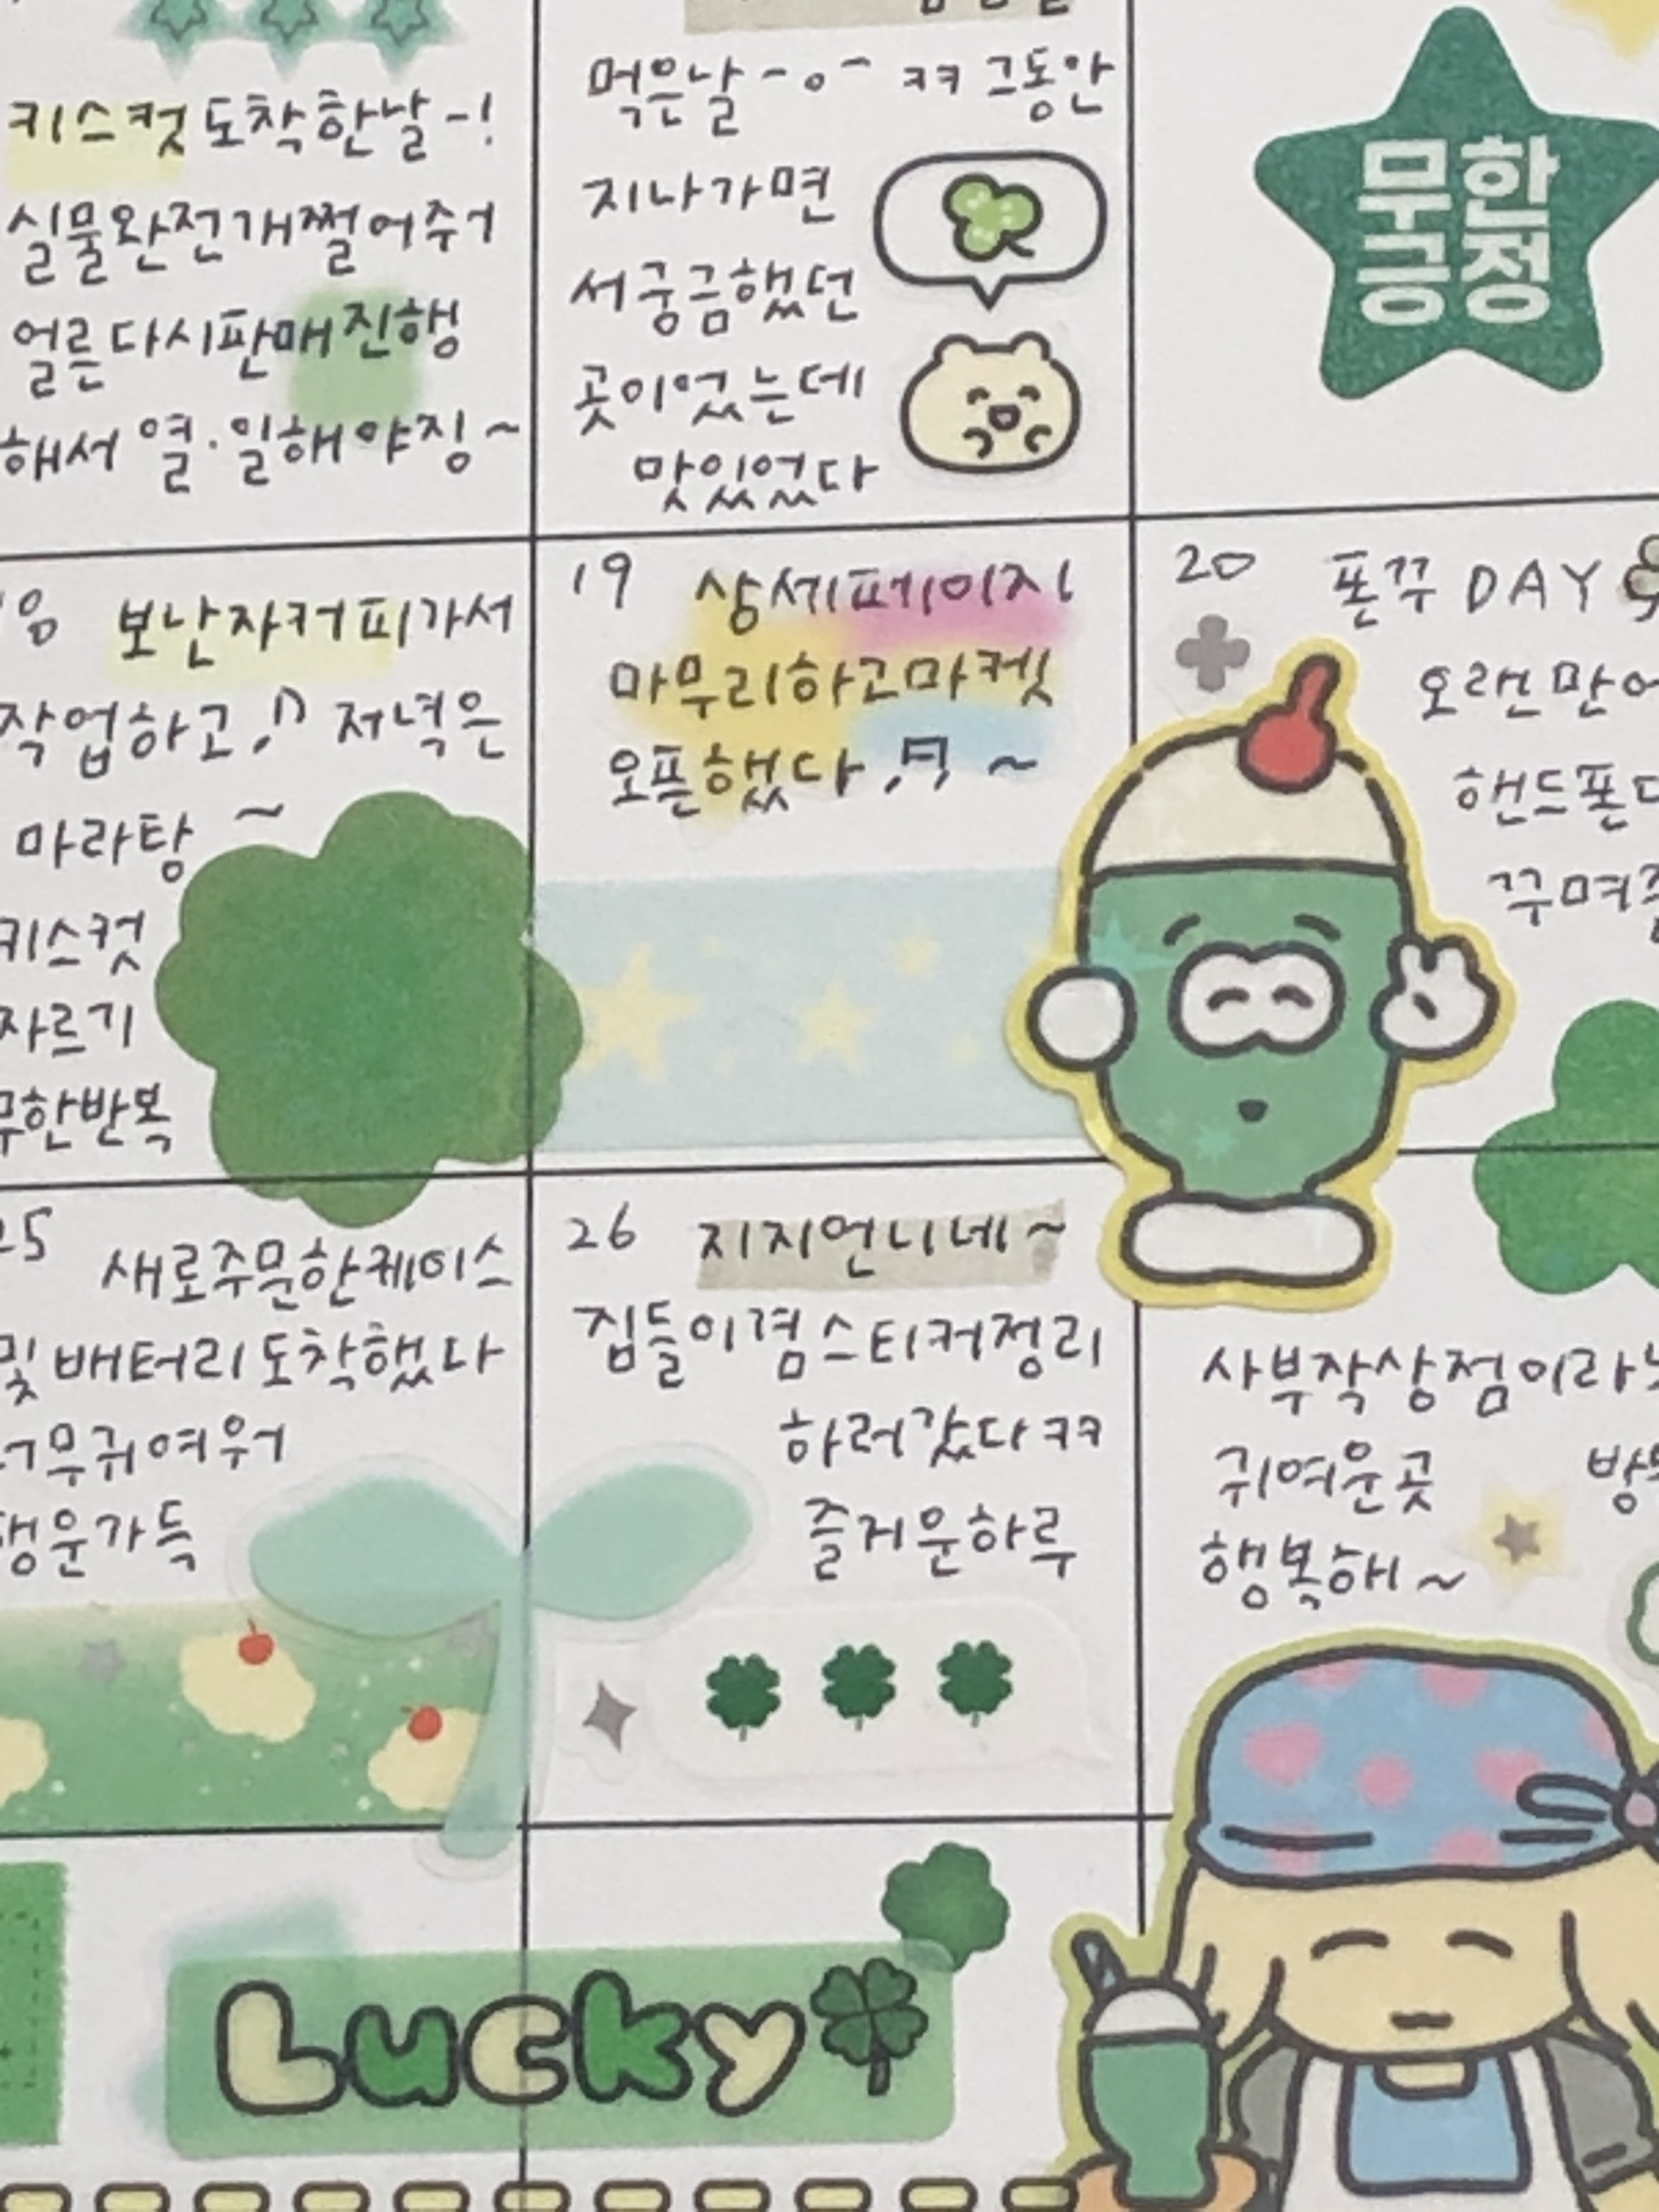 키스컷도착한날~!
실물완전개쩔어주거
얼른다시판매진행
해서 열·일해야징~
먹은날~o~ ㅋㅋ 그동안
지나가면
서궁금했던
곳이었는데
맛있었다
무한
긍정
보난자커피가서
작업하고♫ 저녁은
마라탕 ~
키스컷
자르기
무한반복
19 상세페이지
마무리하고마켓
오픈했다♬ ~
20 폰꾸 DAY
오랜만에
핸드폰
꾸며
25 새로주문한케이스
및배터리도착했다
너무귀여워
행운가득
26 지지언니네~
집들이겸스티커정리
하러갔다ㅋㅋ
즐거운하루
사부작상점이라
귀여운곳
행복해~
Lucky